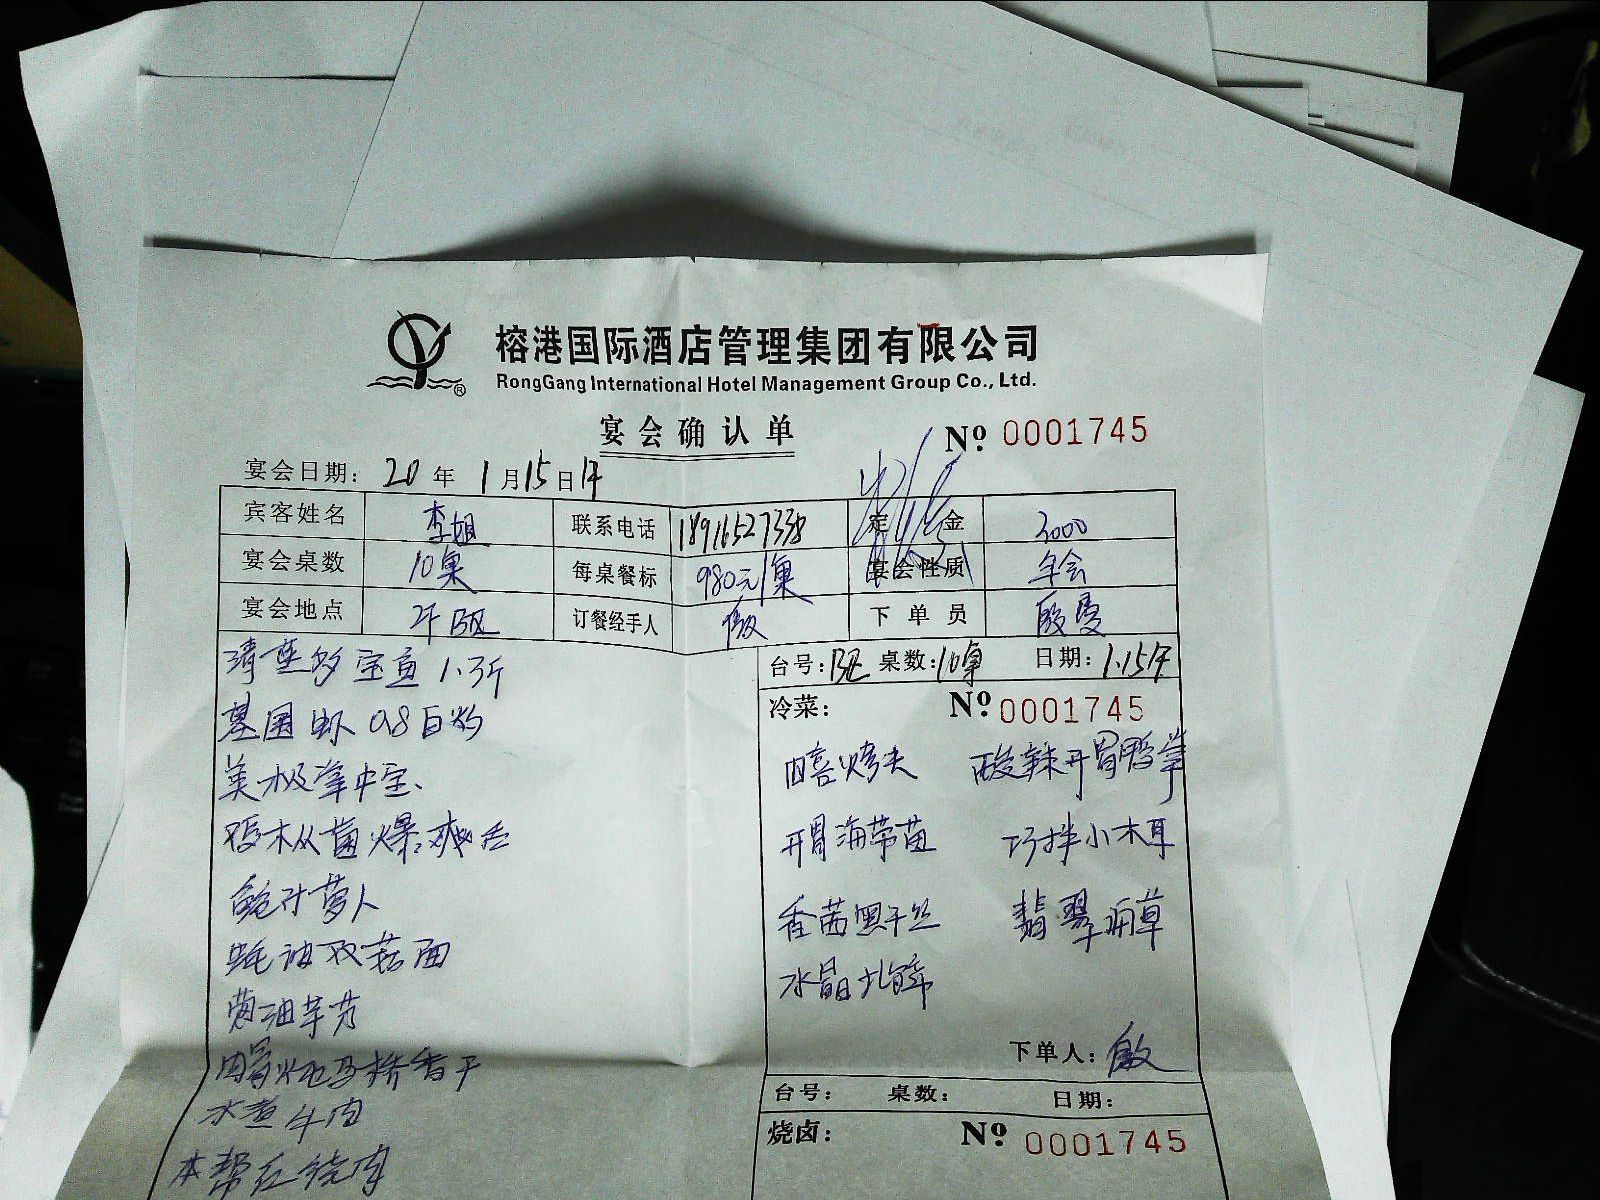 榕港国际酒店管理集团有限公司
RongGang International Hotel Management Group Co., Ltd.
宴会确认单
№ 0001745
宴会日期: 20 年 1 月 15 日
宾客姓名 李姐 联系电话 定金 3000
宴会桌数 10桌 每桌餐标 980元/桌 宴会性质 年会
宴会地点 订餐经手人 下单员
清蒸多宝鱼 1.3斤
基围虾 0.8
美极掌中宝、
鸡枞菌爆
鲍汁萝卜
蚝油双菇面
葱油芋艿
马桥香干
水煮牛肉
本帮红烧肉
台号: 桌数: 10桌 日期: 1.15
冷菜: № 0001745
四喜烤夫 酸辣开胃鸭掌
开胃海带苗 巧拌小木耳
香茜黑干丝 翡翠
水晶
下单人:
台号: 桌数: 日期:
烧卤: № 0001745